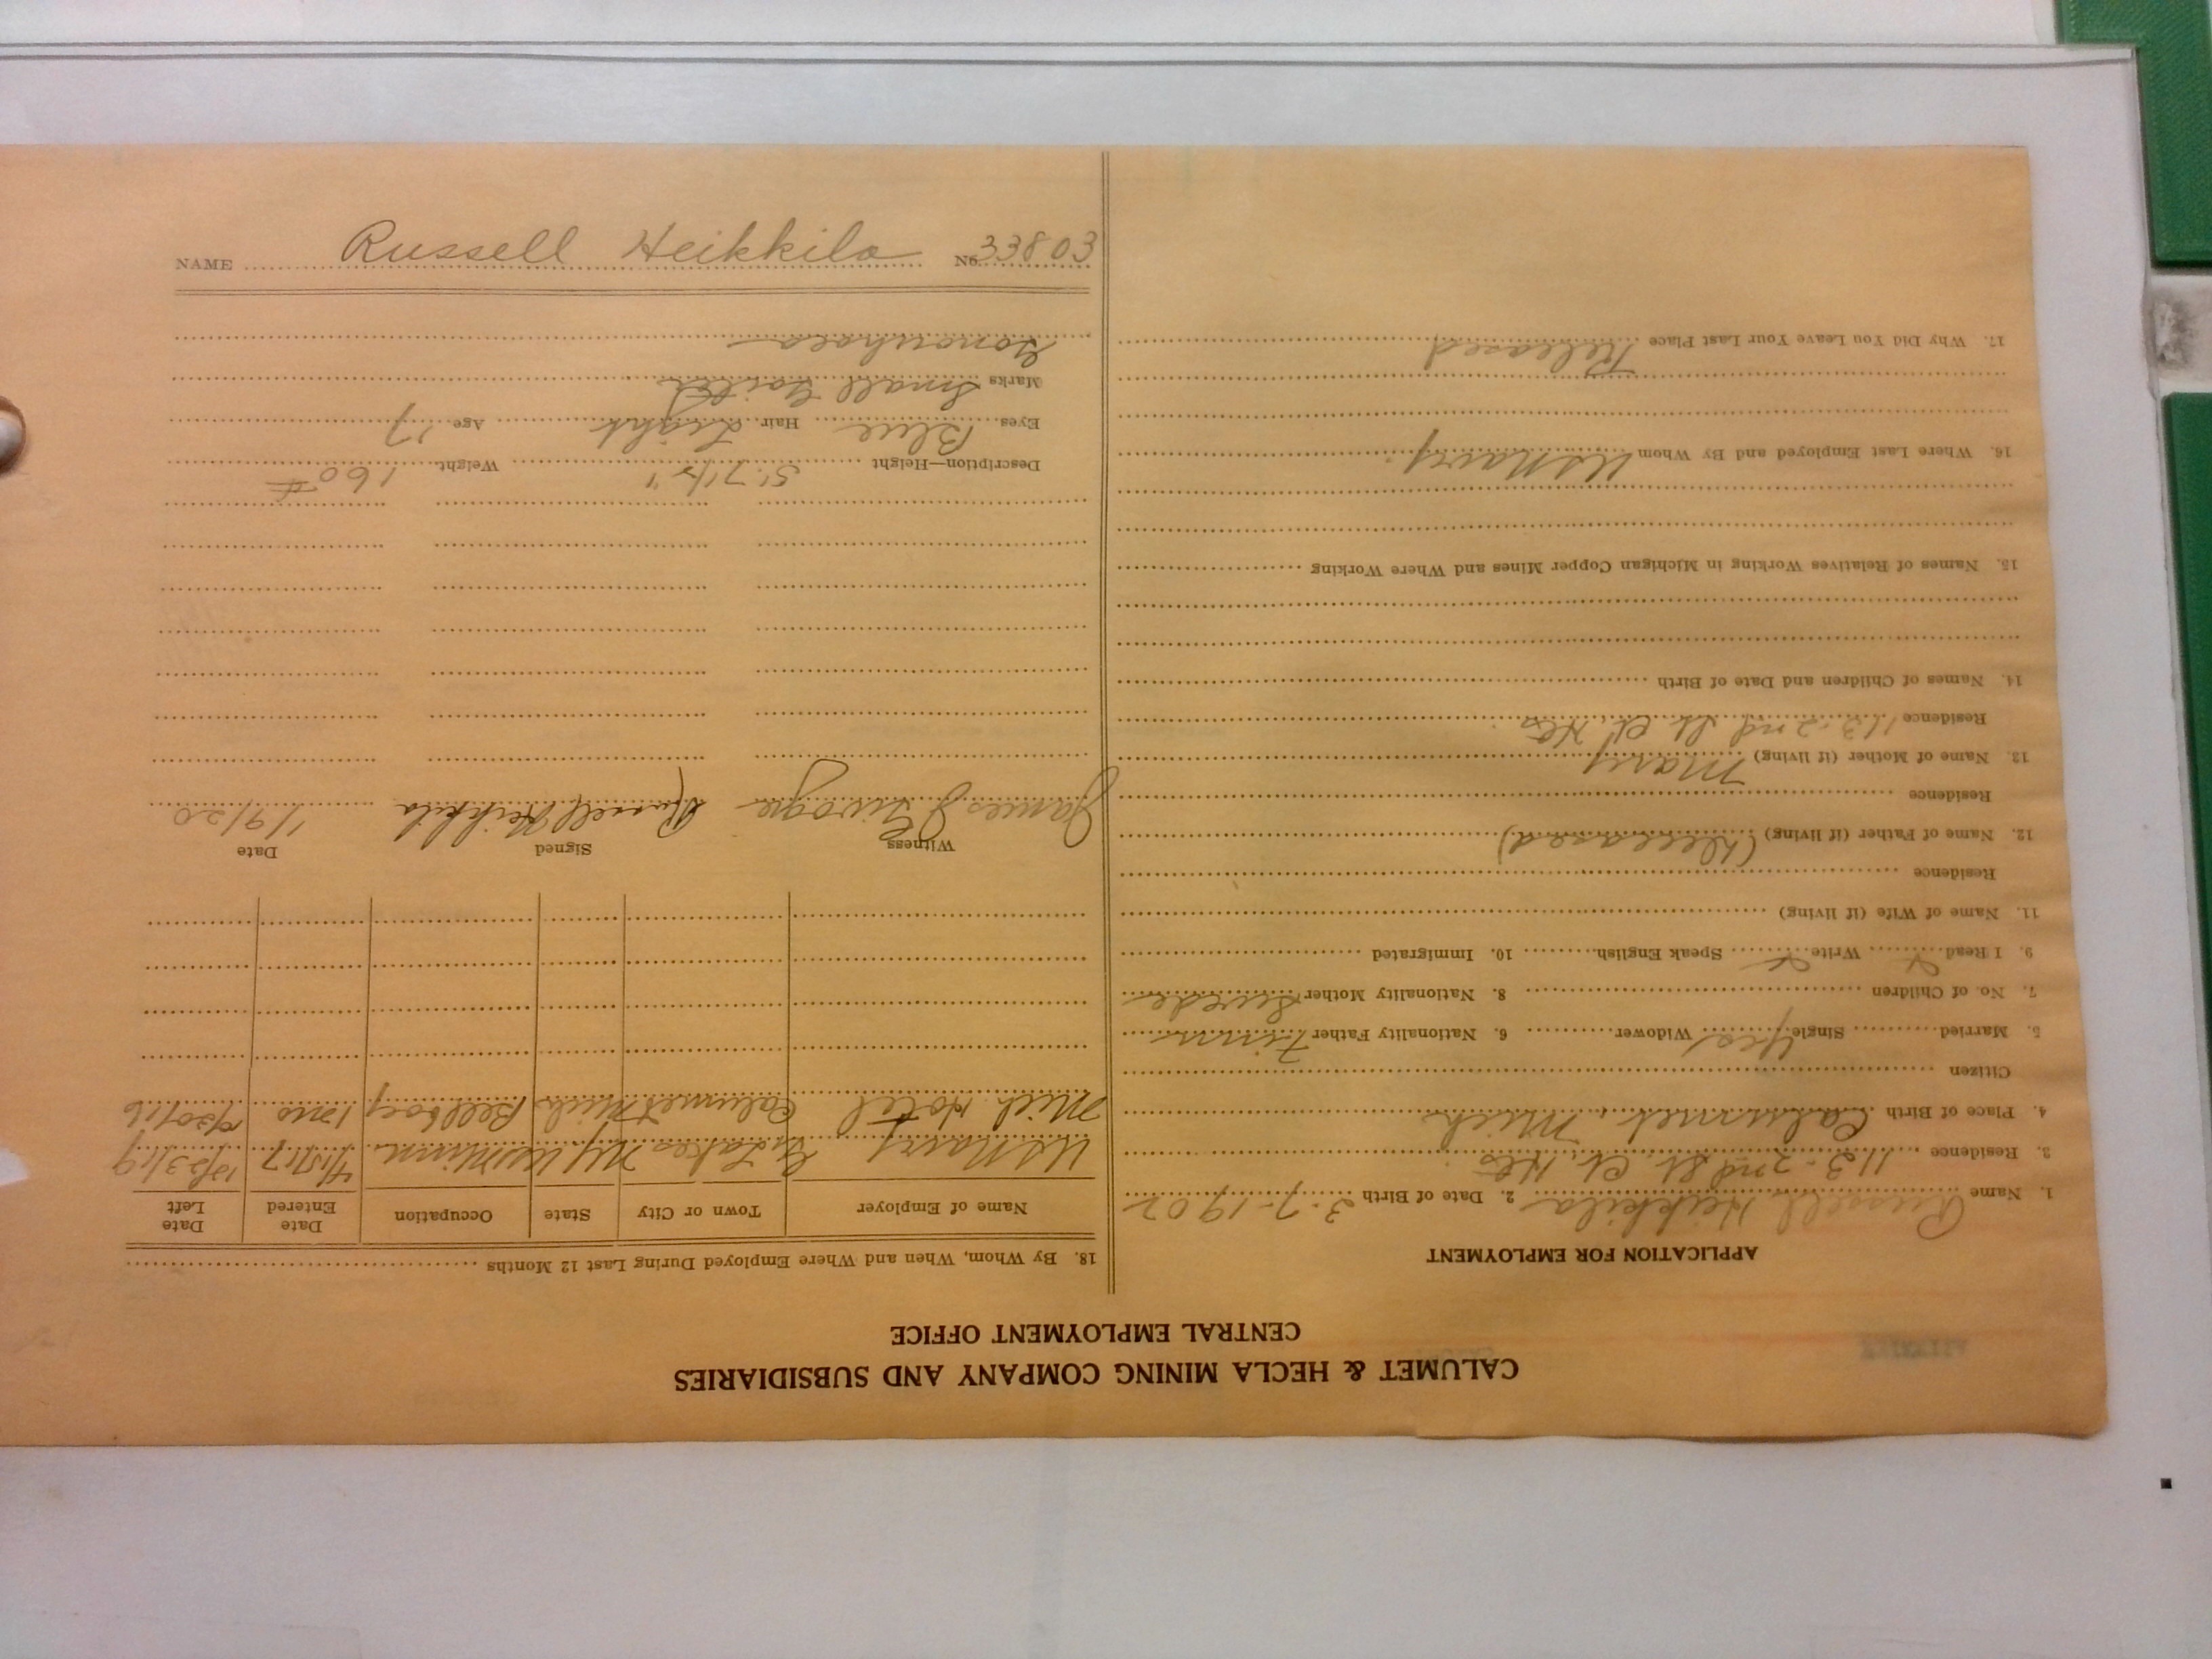 CALUMET & HECLA MINING COMPANY AND SUBSIDIARIES
CENTRAL EMPLOYMENT OFFICE
APPLICATION FOR EMPLOYMENT
1. Name Russell Heikkila 2. Date of Birth 3-7-1902
3. Residence 113-2nd St. Cl. Hts.
4. Place of Birth Calumet, Mich
Citizen
5. Married Single Yes Widower 6. Nationality Father Finn
7. No. of Children 8. Nationality Mother Swede
9. I Read Write Speak English 10. Immigrated
11. Name of Wife (if living)
Residence
12. Name of Father (if living) (Deceased)
Residence
13. Name of Mother (if living) Mary
Residence 113-2nd St. Cl. Hts
14. Names of Children and Date of Birth
15. Names of Relatives Working in Michigan Copper Mines and Where Working
16. Where Last Employed and By Whom US Navy
17. Why Did You Leave Your Last Place Released
18. By Whom, When and Where Employed During Last 12 Months
Name of Employer Town or City State Occupation Date Entered Date Left
US Navy Gt Lakes 4/15/17
Mich. Hotel Calumet Mich Bellboy
Witness Signed Date
James Russell Heikkila 1/9/20
Description—Height 5' 7 1/2" Weight 160 #
Eyes Blue Hair Light Age 17
Marks Small
NAME Russell Heikkila No. 33803